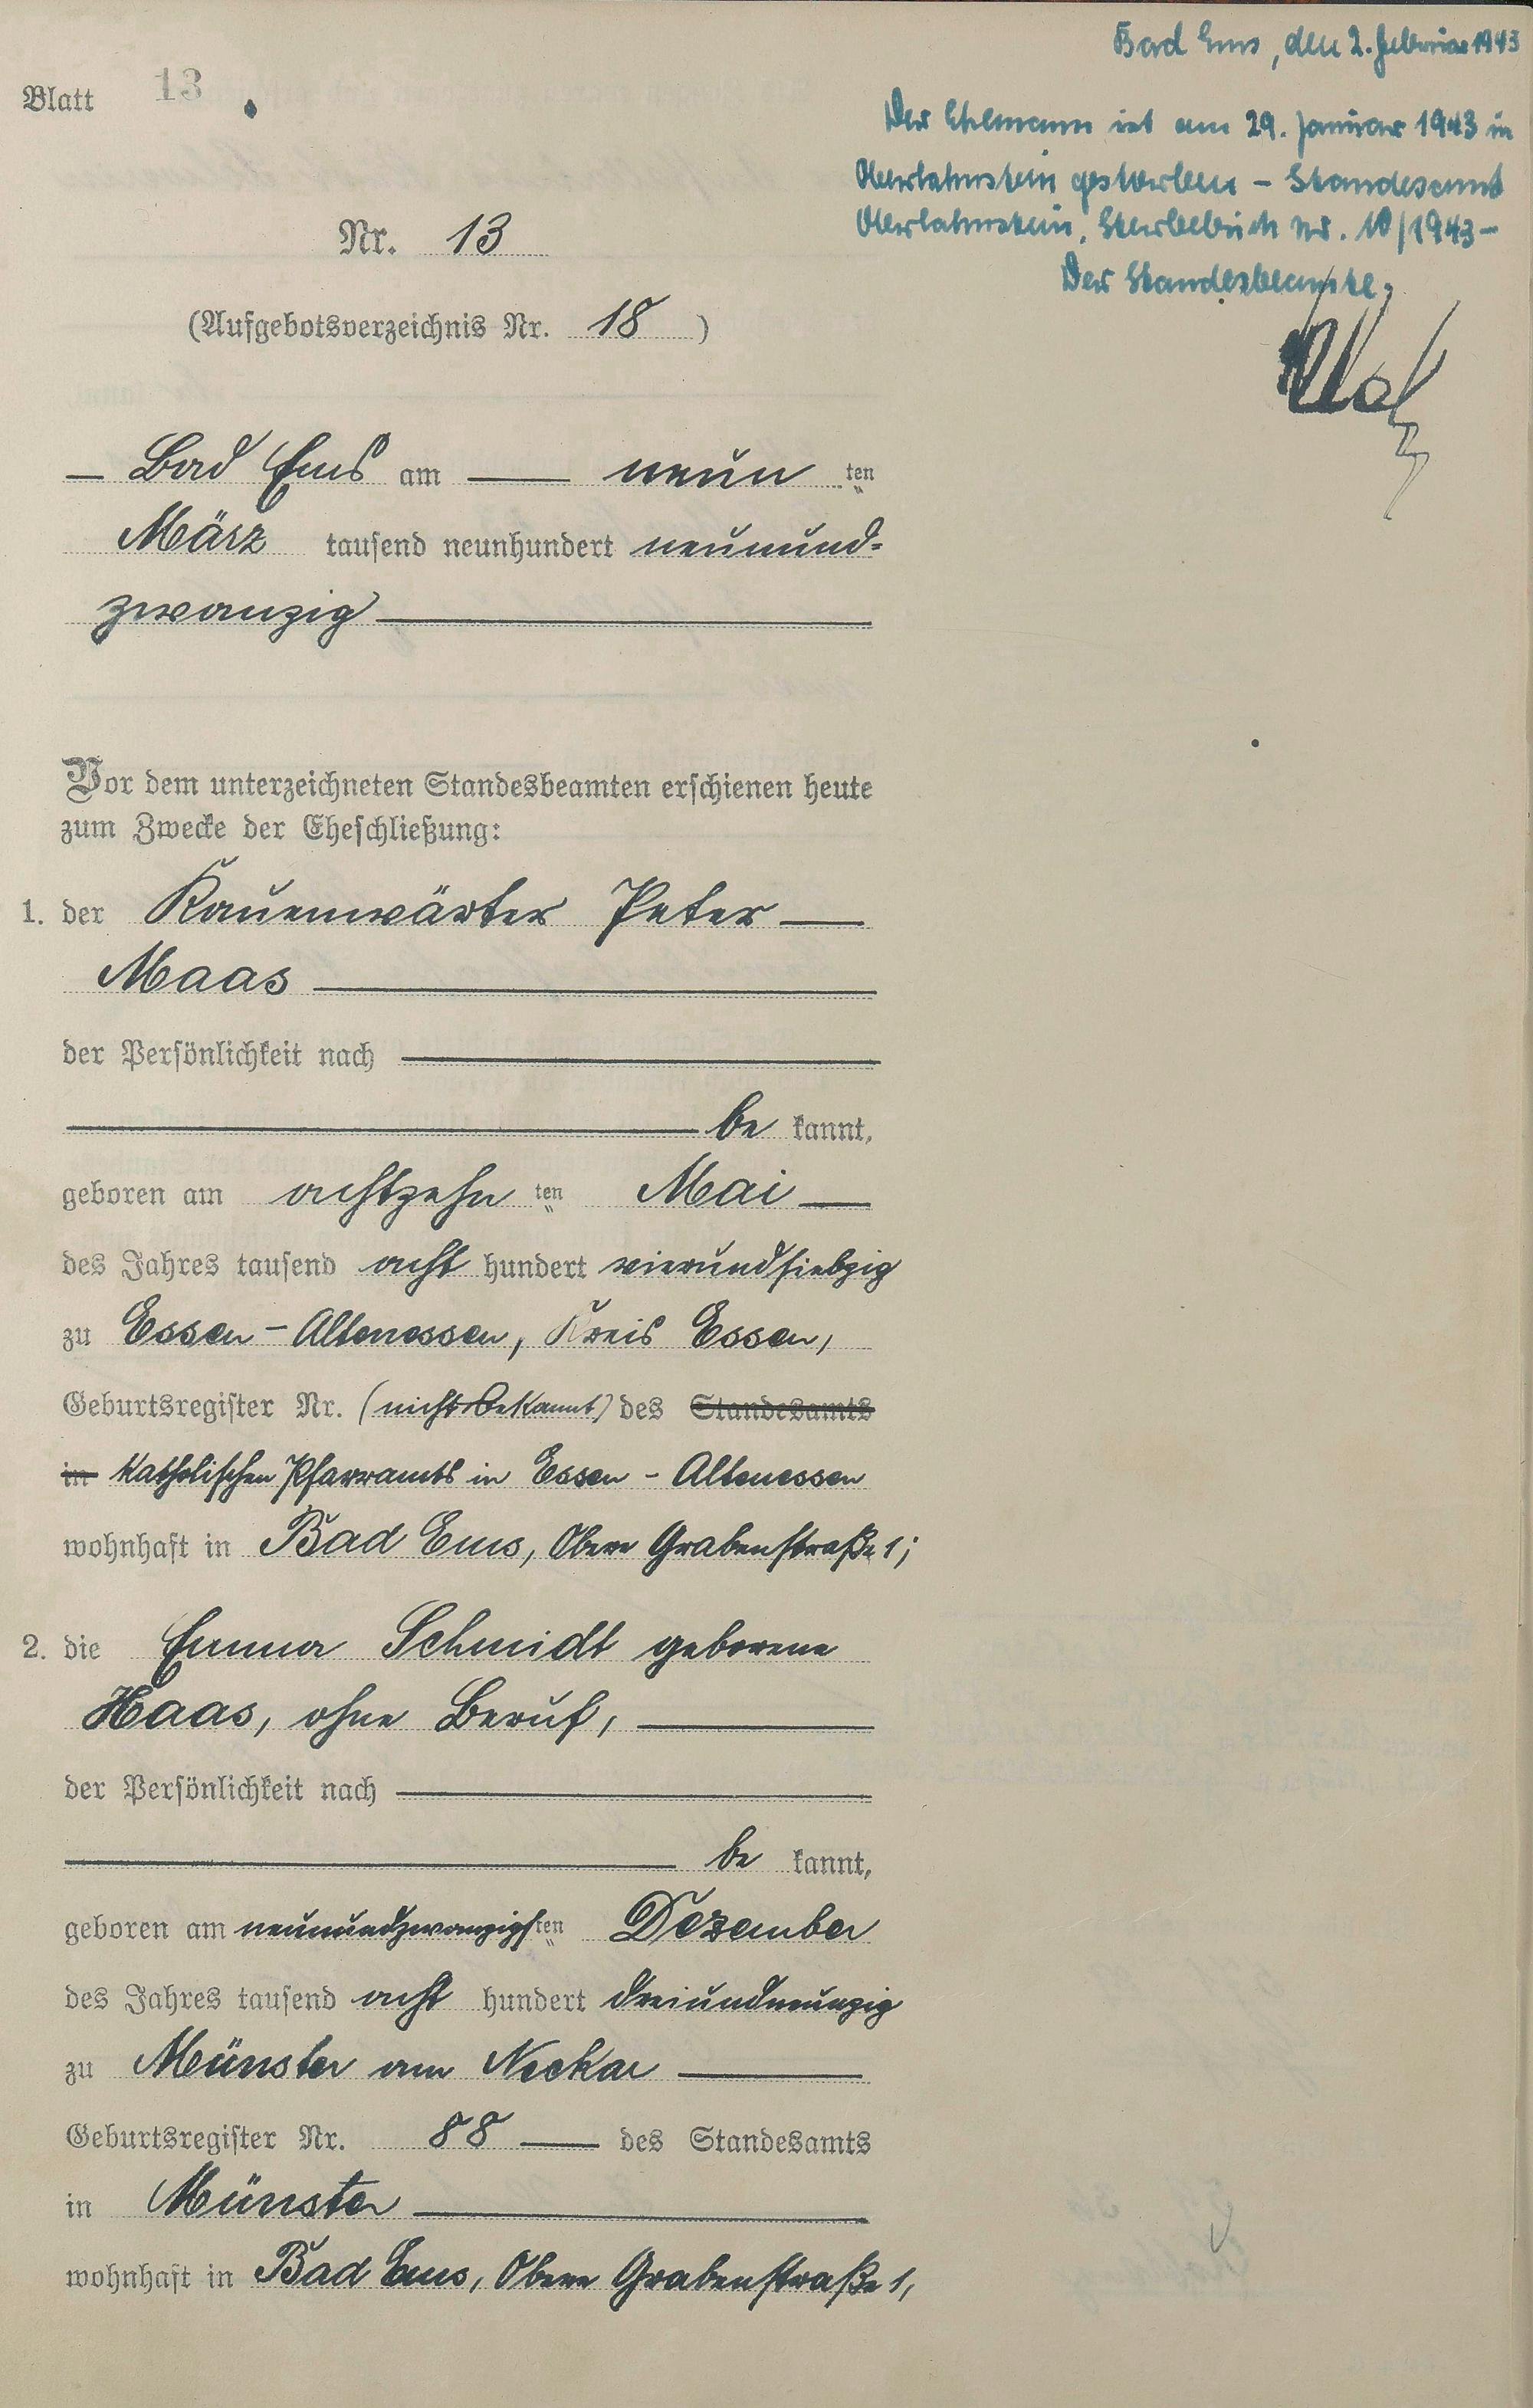 Blatt 13
Nr. 13
(Aufgebotsverzeichnis Nr. 18)
Bad Ems, den 2. Februar 1943
Der Ehemann ist am 29. Januar 1943 in
Oberlahnstein gestorben - Standesamt
Oberlahnstein, Sterbebuch Nr. 10/1943 -
Der Standesbeamte,
— Bad Ems am — neun ten
März tausend neunhundert neunund-
zwanzig —
Vor dem unterzeichneten Standesbeamten erschienen heute
zum Zwecke der Eheschließung:
1. der Kauenwärter Peter —
Maas —
der Persönlichkeit nach —
— be kannt,
geboren am achtzehn ten Mai —
des Jahres tausend acht hundert vierundsiebzig
zu Essen - Altenessen, Kreis Essen,
Geburtsregister Nr. (nicht bekannt) des Standesamts
in katholischen Pfarramts in Essen - Altenessen
wohnhaft in Bad Ems, Obere Grabenstraße 1;
2. die Emma Schmidt geborene
Haas, ohne Beruf, —
der Persönlichkeit nach —
— be kannt,
geboren am neunundzwanzigsten Dezember
des Jahres tausend acht hundert dreiundneunzig
zu Münster am Neckar —
Geburtsregister Nr. 88 — des Standesamts
in Münster —
wohnhaft in Bad Ems, Obere Grabenstraße 1,